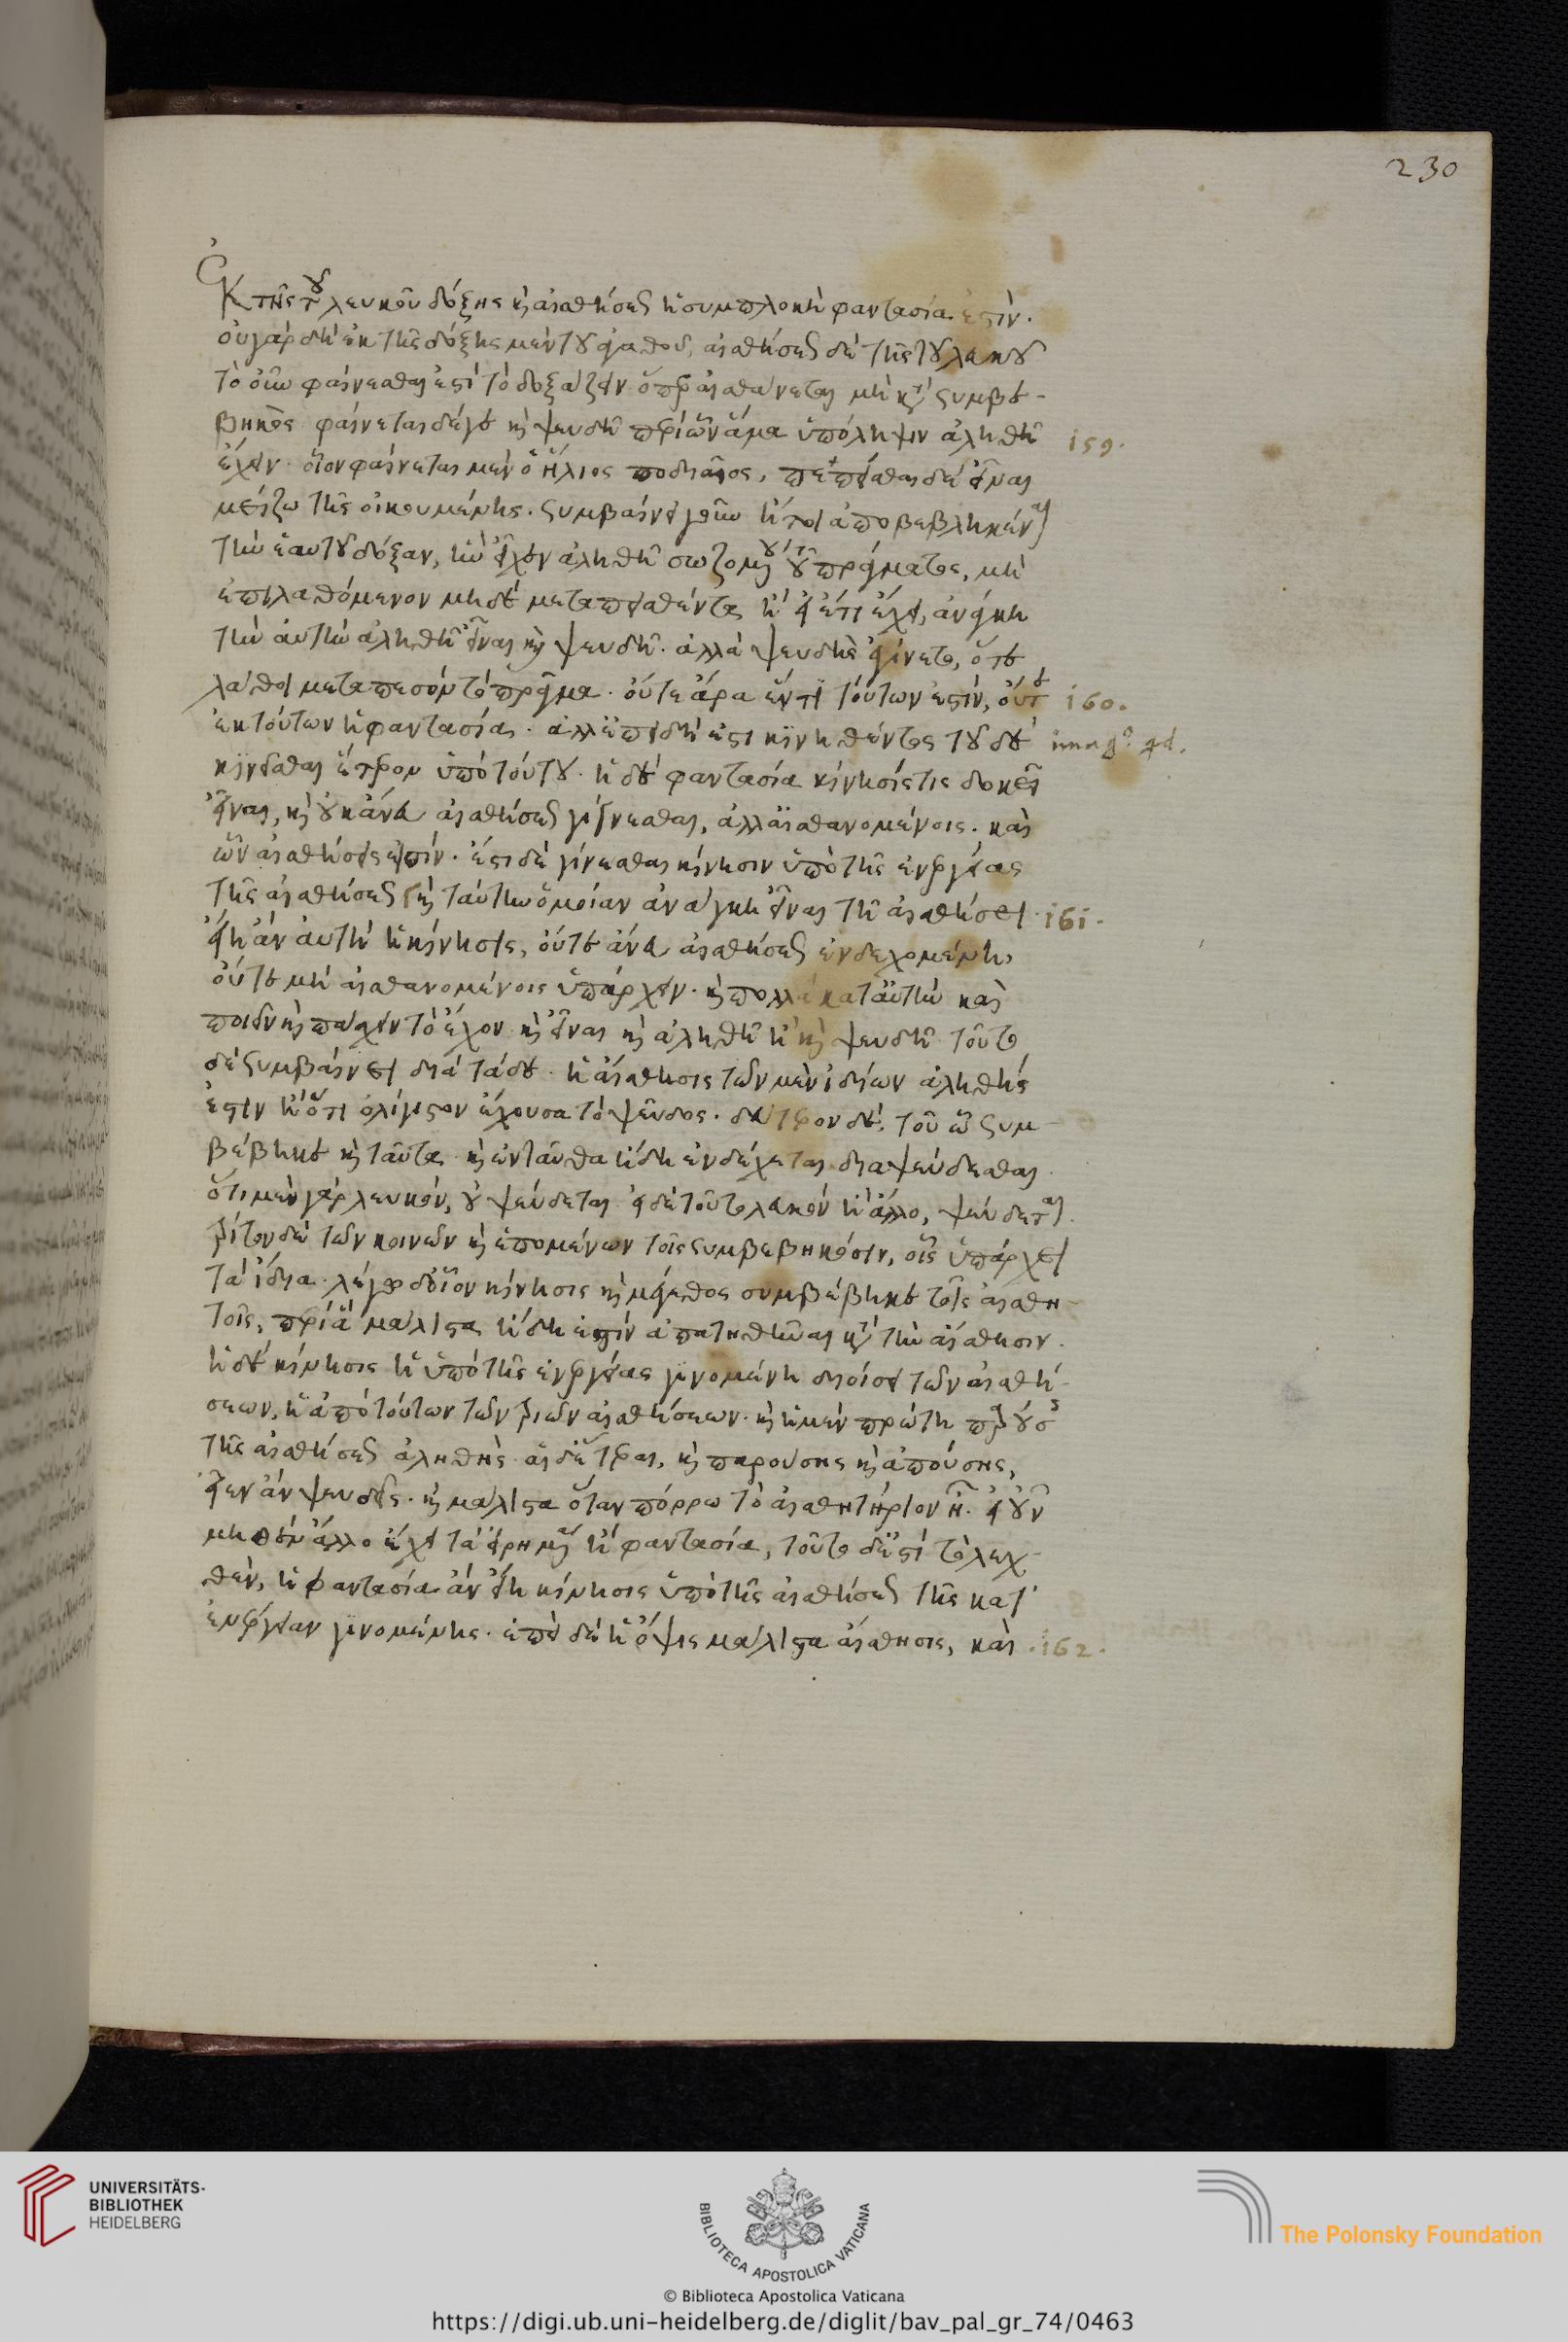 Ἐκ τῆς τοῦ λευκοῦ δόξης καὶ αἰσθήσεως ἡ συμπλοκὴ φαντασία ἐστίν.
οὐ γὰρ δὴ ἐκ τῆς δόξης μὲν τοῦ ἀγαθοῦ, αἰσθήσεως δὲ τῆς τοῦ λευκοῦ
τὸ οὖν φαίνεσθαι ἐστὶ τὸ δοξάζειν ὅπερ αἰσθάνεται μὴ κατὰ συμβε-
βηκὸς φαίνεται δέ γε καὶ ψευδῆ περὶ ὧν ἅμα ὑπόληψιν ἀληθῆ 159.
ἔχειν. οἷον φαίνεται μὲν ὁ ἥλιος ποδιαῖος, πεπεῖσθαι δὲ εἶναι
μείζω τῆς οἰκουμένης. συμβαίνει γοῦν ἤτοι ἀποβεβληκέναι
τὴν ἑαυτοῦ δόξαν, ἣν εἶχεν ἀληθῆ σωζομένου τοῦ πράγματος, μὴ
ἐπιλαθόμενον μηδὲ μεταπεισθέντα ἢ εἰ ἔτι ἔχει, ἀνάγκη
τὴν αὐτὴν ἀληθῆ εἶναι καὶ ψευδῆ. ἀλλὰ ψευδὴς ἐγίνετο, ὅτε
λάθοι μεταπεσὸν τὸ πρᾶγμα. οὔτε ἄρα ἕν τι τούτων ἐστὶν, οὔτε 160.
ἐκ τούτων ἡ φαντασία. ἀλλ' ἐπειδή ἐστι κινηθέντος τοῦ δὲ
κινεῖσθαι ἕτερον ὑπὸ τούτου. ἡ δὲ φαντασία κίνησίς τις δοκεῖ
εἶναι, καὶ οὐκ ἄνευ αἰσθήσεως γίγνεσθαι, ἀλλ' αἰσθανομένοις. καὶ
ὧν αἴσθησίς ἐστίν. ἔστι δὲ γίνεσθαι κίνησιν ὑπὸ τῆς ἐνεργείας
τῆς αἰσθήσεως καὶ ταύτην ὁμοίαν ἀνάγκη εἶναι τῇ αἰσθήσει. 161.
εἴη ἂν αὐτὴ ἡ κίνησις, οὔτε ἄνευ αἰσθήσεως ἐνδεχομένη,
οὔτε μὴ αἰσθανομένοις ὑπάρχειν. καὶ πολλὰ κατ' αὐτὴν καὶ
ποιεῖν καὶ πάσχειν τὸ ἔχον καὶ εἶναι καὶ ἀληθῆ ἢ καὶ ψευδῆ τοῦτο
δὲ συμβαίνει διὰ τάδε. ἡ αἴσθησις τῶν μὲν ἰδίων ἀληθής
ἐστιν ἢ ὅτι ὀλίγιστον ἔχουσα τὸ ψεῦδος. δεύτερον δὲ, τοῦ ᾧ συμ-
βέβηκε καὶ ταῦτα. καὶ ἐνταῦθα ἤδη ἐνδέχεται διαψεύδεσθαι.
ὅτι μὲν γὰρ λευκὸν, οὐ ψεύδεται εἰ δὲ τοῦτο λευκὸν ἢ ἄλλο, ψεύδεται.
τρίτον δὲ τῶν κοινῶν καὶ ἑπομένων τοῖς συμβεβηκόσιν, οἷς ὑπάρχει
τὰ ἴδια. λέγω δ' οἷον κίνησις καὶ μέγεθος συμβέβηκε τοῖς αἰσθη-
τοῖς, περὶ ἃ μάλιστα ἤδη ἐστὶν ἀπατηθῆναι κατὰ τὴν αἴσθησιν.
ἡ δὲ κίνησις ἡ ὑπὸ τῆς ἐνεργείας γινομένη διοίσει τῶν αἰσθή-
σεων, ἡ ἀπὸ τούτων τῶν τριῶν αἰσθήσεων. καὶ ἡ μὲν πρώτη παρούσης
τῆς αἰσθήσεως ἀληθὴς αἱ δ' ἕτεραι, καὶ παρούσης καὶ ἀπούσης,
εἶεν ἂν ψευδεῖς. καὶ μάλιστα ὅταν πόρρω τὸ αἰσθητήριον ᾖ. εἰ οὖν
μηθὲν ἄλλο ἔχει τὰ εἰρημένα ἢ φαντασία, τοῦτο δ' ἐστὶ τὸ λεχ-
θὲν, ἡ φαντασία ἂν εἴη κίνησις ὑπὸ τῆς αἰσθήσεως τῆς κατ'
ἐνέργειαν γινομένης. ἐπεὶ δὲ ἡ ὄψις μάλιστα αἴσθησις, καὶ 162.
230
UNIVERSITÄTS-
BIBLIOTHEK
HEIDELBERG
BIBLIOTECA APOSTOLICA VATICANA
The Polonsky Foundation
© Biblioteca Apostolica Vaticana
https://digi.ub.uni-heidelberg.de/diglit/bav_pal_gr_74/0463